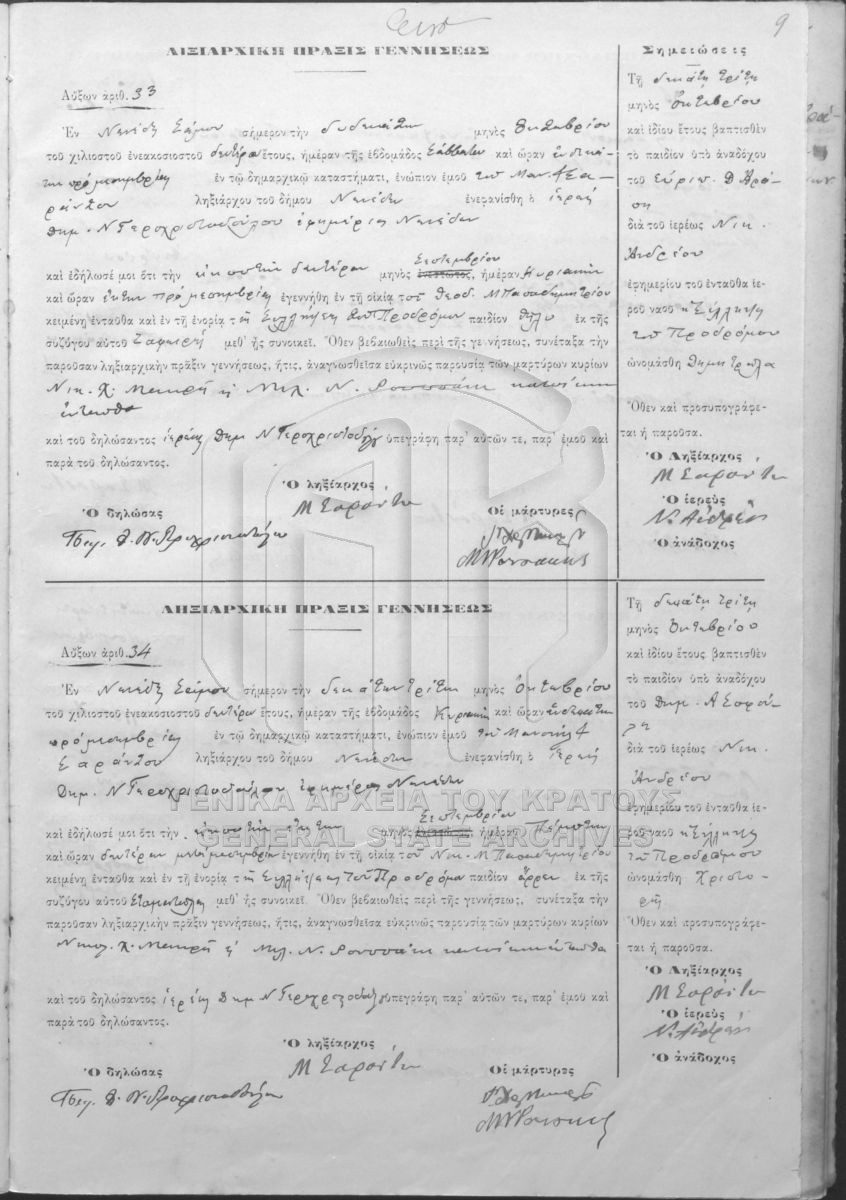 9
ΛΙΞΙΑΡΧΙΚΗ ΠΡΑΞΙΣ ΓΕΝΝΗΣΕΩΣ
Αὔξων ἀριθ. 33
Ἐν Σάμου σήμερον τὴν δωδεκάτην μηνὸς Ὀκτωβρίου
τοῦ χιλιοστοῦ ἐνεακοσιοστοῦ δευτέρου ἔτους, ἡμέραν τῆς ἑβδομάδος Σάββατον καὶ ὥραν ἑνδεκά-
την πρὸ μεσημβρίας ἐν τῷ δημαρχικῷ καταστήματι, ἐνώπιον ἐμοῦ τοῦ Μαν. Σα-
ράντου ληξιάρχου τοῦ δήμου ἐνεφανίσθη ὁ ἱερεὺς
Δημ. Ν Γεροχριστοδούλου ἐφημέριος
καὶ ἐδήλωσέ μοι ὅτι τὴν εἰκοστὴν δευτέραν μηνὸς Σεπτεμβρίου ἡμέραν Κυριακὴν
καὶ ὥραν πρὸ μεσημβρίας ἐγεννήθη ἐν τῇ οἰκίᾳ τοῦ Θεοδ. Μ Παπαδημητρίου
κειμένῃ ἐνταῦθα καὶ ἐν τῇ ἐνορίᾳ τοῦ Προδρόμου παιδίον θῆλυ ἐκ τῆς
συζύγου αὐτοῦ μεθ' ἧς συνοικεῖ. Ὅθεν βεβαιωθεὶς περὶ τῆς γεννήσεως, συνέταξα τὴν
παροῦσαν ληξιαρχικὴν πρᾶξιν γεννήσεως, ἥτις, ἀναγνωσθεῖσα εὐκρινῶς παρουσίᾳ τῶν μαρτύρων κυρίων
Νικ. Χ. Μακρῆ Μιχ. Ν. Ρουσσάκη κατοίκων
ἐνταῦθα
καὶ τοῦ δηλώσαντος ἱερέως Δημ Ν Γεροχριστοδούλου ὑπεγράφη παρ' αὐτῶν τε, παρ' ἐμοῦ καὶ
παρὰ τοῦ δηλώσαντος.
Ὁ ληξίαρχος
Μ Σαράντου
Ὁ δηλώσας
Οἱ μάρτυρες
Σημειώσεις
Τῇ δεκάτῃ τρίτῃ
μηνὸς Ὀκτωβρίου
καὶ ἰδίου ἔτους βαπτισθὲν
τὸ παιδίον ὑπὸ ἀναδόχου
τοῦ Εὐριπ. Δ
διὰ τοῦ ἱερέως Νικ.
Ἀνδρέου
ἐφημερίου τοῦ ἐνταῦθα ἱε-
ροῦ ναοῦ
τοῦ Προδρόμου
ὠνομάσθη Δημητρούλα
Ὅθεν καὶ προσυπογράφε-
ται ἡ παροῦσα.
Ὁ Ληξίαρχος
Μ Σαράντου
Ὁ ἱερεὺς
Ν. Ἀνδρέου
Ὁ ἀνάδοχος
ΛΗΞΙΑΡΧΙΚΗ ΠΡΑΞΙΣ ΓΕΝΝΗΣΕΩΣ
Αὔξων ἀριθ. 34
Ἐν Σάμου σήμερον τὴν δεκάτην τρίτην μηνὸς Ὀκτωβρίου
τοῦ χιλιοστοῦ ἐνεακοσιοστοῦ δευτέρου ἔτους, ἡμέραν τῆς ἑβδομάδος Κυριακὴν καὶ ὥραν
πρὸ μεσημβρίας ἐν τῷ δημαρχικῷ καταστήματι, ἐνώπιον ἐμοῦ τοῦ Μανουὴλ
Σαράντου ληξιάρχου τοῦ δήμου ἐνεφανίσθη ὁ ἱερεὺς
Δημ. Ν Γεροχριστοδούλου ἐφημέριος
καὶ ἐδήλωσέ μοι ὅτι τὴν εἰκοστὴν μηνὸς Σεπτεμβρίου ἡμέραν Πέμπτην
καὶ ὥραν δευτέραν μετὰ μεσημβρίαν ἐγεννήθη ἐν τῇ οἰκίᾳ τοῦ Νικ. Μ Παπαδημητρίου
κειμένῃ ἐνταῦθα καὶ ἐν τῇ ἐνορίᾳ τοῦ Προδρόμου παιδίον ἄρρεν ἐκ τῆς
συζύγου αὐτοῦ Σταματούλας μεθ' ἧς συνοικεῖ. Ὅθεν βεβαιωθεὶς περὶ τῆς γεννήσεως, συνέταξα τὴν
παροῦσαν ληξιαρχικὴν πρᾶξιν γεννήσεως, ἥτις, ἀναγνωσθεῖσα εὐκρινῶς παρουσίᾳ τῶν μαρτύρων κυρίων
Νικολ. Χ. Μακρῆ Μιχ. Ν. Ρουσσάκη κατοίκων ἐνταῦθα
καὶ τοῦ δηλώσαντος ἱερέως Δημ Ν Γεροχριστοδούλου ὑπεγράφη παρ' αὐτῶν τε, παρ' ἐμοῦ καὶ
παρὰ τοῦ δηλώσαντος.
Ὁ ληξίαρχος
Μ Σαράντου
Ὁ δηλώσας
Οἱ μάρτυρες
Τῇ δεκάτῃ τρίτῃ
μηνὸς Ὀκτωβρίου
καὶ ἰδίου ἔτους βαπτισθὲν
τὸ παιδίον ὑπὸ ἀναδόχου
τοῦ Δημ.
διὰ τοῦ ἱερέως Νικ.
Ἀνδρέου
ἐφημερίου τοῦ ἐνταῦθα ἱε-
ροῦ ναοῦ
τοῦ Προδρόμου
ὠνομάσθη
Ὅθεν καὶ προσυπογράφε-
ται ἡ παροῦσα.
Ὁ Ληξίαρχος
Μ Σαράντου
Ὁ ἱερεὺς
Ν. Ἀνδρέου
Ὁ ἀνάδοχος
ΓΕΝΙΚΑ ΑΡΧΕΙΑ ΤΟΥ ΚΡΑΤΟΥΣ
GENERAL STATE ARCHIVES